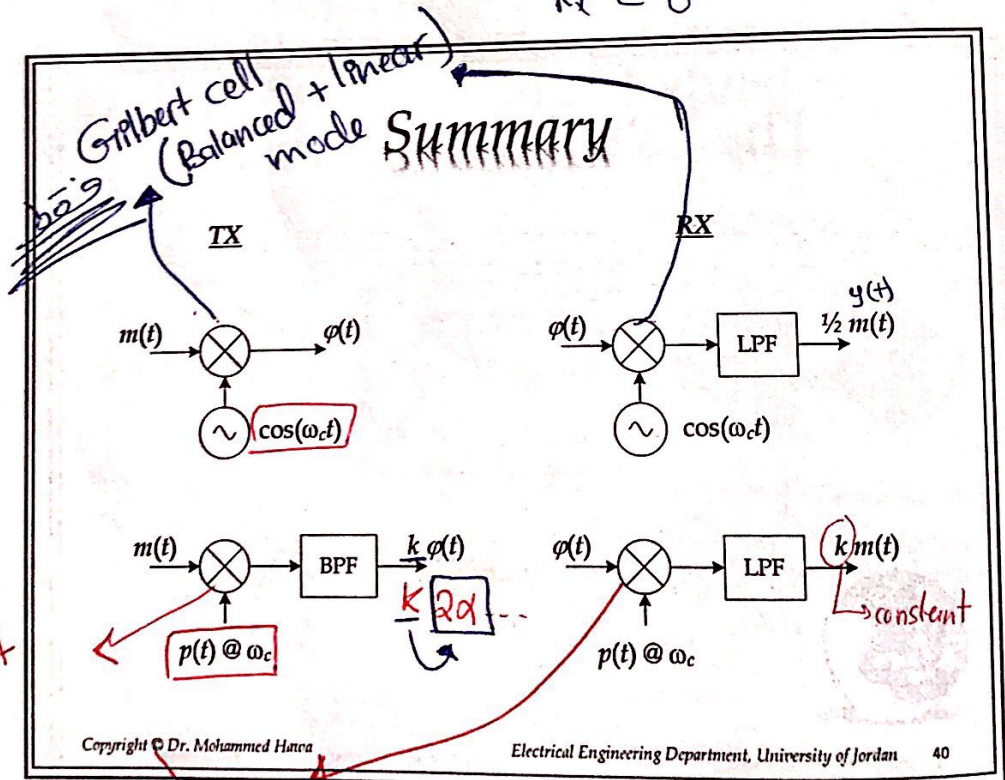 Gilbert cell
(Balanced + linear)
mode
فقط
Summary
TX
RX
m(t)
φ(t)
cos(ωct)
φ(t)
LPF
y(t)
½ m(t)
cos(ωct)
m(t)
BPF
k φ(t)
k 2α ...
p(t) @ ωc
φ(t)
LPF
k m(t)
constant
p(t) @ ωc
Copyright © Dr. Mohammed Hawa
Electrical Engineering Department, University of Jordan 40